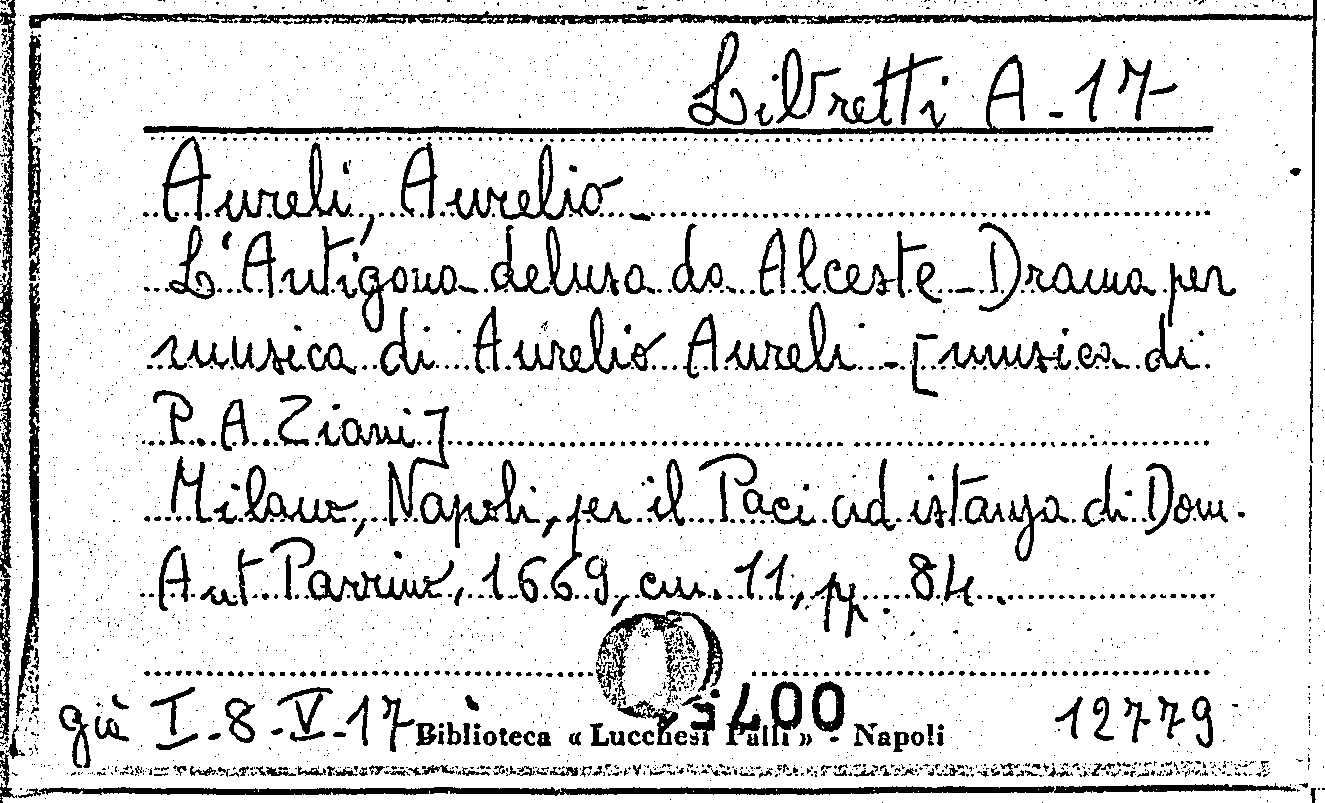 Libretti A-17
Aureli, Aurelio -
L'Antigona delusa da Alceste - Drama per
musica di Aurelio Aureli - [musica di
P. A. Ziani]
Milano, Napoli, per il Paci ad istanza di Dom.
Ant. Parrino, 1669, cm. 11, pp. 84.
già I-8-V-17 Biblioteca « Lucchesi Palli » - Napoli 12779